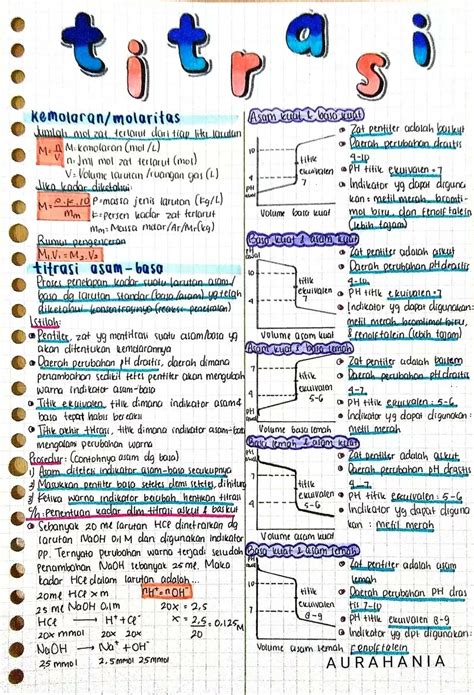 titrasi
kemolaran/molaritas
Jumlah mol zat terlarut dari tiap liter larutan
M = n/V
M: kemolaran (mol/L)
n: Jml mol zat terlarut (mol)
V= Volume larutan/ruangan gas (L)
Jika kadar diketahui
M = ρ.k.10/mm
ρ=massa jenis larutan (kg/L)
k=persen kadar zat terlarut
mm=Massa molar/Ar/Mr(kg)
Rumus pengenceran
M₁.V₁ = M₂.V₂
titrasi asam-basa
Proses penetapan kadar suatu larutan asam/
basa dg larutan standar (basa/asam) yg telah
diketahui konsentrasinya (reaksi penetralan)
Istilah:
Pentiter, zat yg mentitrasi suatu asam/basa yg
akan ditentukan kemolarannya
Daerah perubahan pH drastis, daerah dimana
penambahan sedikit tetes pentiter akan mengubah
warna indikator asam-basa
Titik ekuivalen, titik dimana indikator asam&
basa tepat habis bereaksi
Titik akhir titrasi, titik dimana indikator asam-basa
mengalami perubahan warna
Prosedur: (Contohnya asam dg basa)
1) Asam ditetesi indikator asam-basa secukupnya
2) Masukkan pentiter basa setetes demi setetes, dihitung
3) Ketika warna indikator berubah hentikan titrasi
s/h: penentuan kadar dlm titrasi askut & baskut
Sebanyak 20 ml larutan HCl dinetralkan dg
larutan NaOH 0,1 M dan digunakan indikator
pp. Ternyata perubahan warna terjadi sesudah
penambahan NaOH sebanyak 25 ml. Maka
kadar HCl dalam larutan adalah...
20ml HCl x m
nH⁺ = nOH⁻
25 ml NaOH 0,1m
20x = 2,5
HCl → H⁺ + Cl⁻
x = 2,5/20 = 0,125M
20x mmol 20x 20x
NaOH → Na⁺ + OH⁻
2,5 mmol 2,5 mmol 2,5 mmol
Asam kuat & basa kuat
10
7
4
pH
titik
ekuivalen
7
Volume basa kuat
Zat pentiter adalah baskut
Daerah perubahan drastis
4-10
pH titik ekuivalen =
7
Indikator yg dapat diguna
kan: metil merah, bromti-
mol biru, dan fenolftalein
(lebih tajam)
Basa kuat & asam kuat
10
7
4
titik
ekuivalen
7
Volume asam kuat
Zat pentiter adalah askut
Daerah perubahan pH drastis
4-10
pH titik ekuivalen =7
Indikator yg dapat digunakan:
metil merah, bromtimol biru,
& fenolftalein (lebih tajam)
Asam kuat & basa lemah
7
4
titik
ekuivalen
5-6
Volume basa lemah
Zat pentiter adalah baslem
Daerah perubahan pH drastis
4-7
pH titik ekuivalen: 5-6
Indikator yg dapat digunakan:
metil merah
Basa lemah & asam kuat
7
4
titik
ekuivalen
5-6
Zat pentiter adalah askut
Daerah perubahan pH drastis
4-7
pH titik ekuivalen : 5-6
Indikator yg dapat diguna
kan : metil merah
Basa kuat & asam lemah
10
7
titik
ekuivalen
8-9
Volume asam lemah
Zat pentiter adalah asam
lemah
Daerah perubahan pH dras
tis 7-10
pH titik ekuivalen 8-9
Indikator yg dpt digunakan:
fenolftalein
AURAHANIA